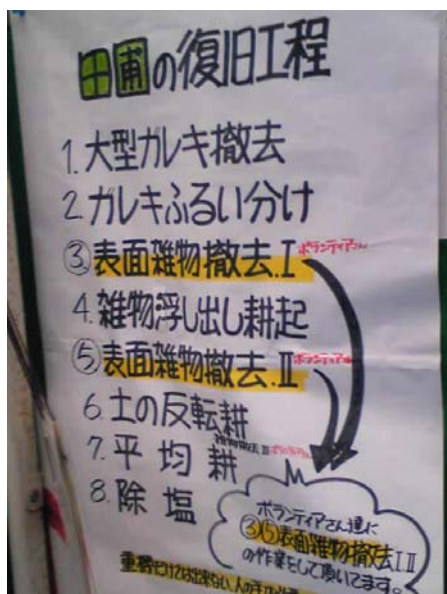 田圃の復旧工程
1. 大型ガレキ撤去
2. ガレキふるい分け
③ 表面雑物撤去.Ⅰ ボランティアさん
4. 雑物浮し出し耕起
⑤ 表面雑物撤去.Ⅱ ボランティア
6. 土の反転耕
7. 平均耕
8. 除塩
ボランティアさん達に
③⑤表面雑物撤去ⅠⅡ
の作業をして頂いてます。
重機だけでは出来ない、人の手